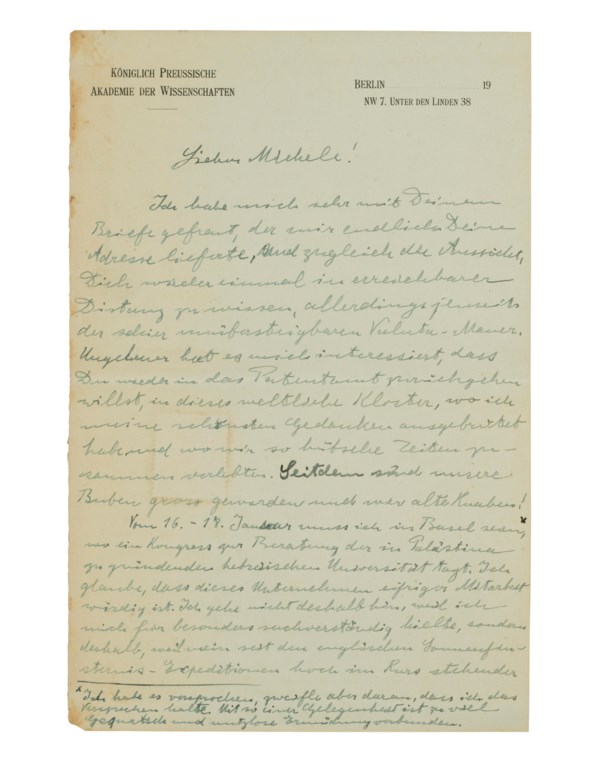 KÖNIGLICH PREUSSISCHE
AKADEMIE DER WISSENSCHAFTEN
BERLIN 19
NW 7. UNTER DEN LINDEN 38
Lieber Michele!
Ich habe mich sehr mit Deinem
Briefe gefreut, der mir endlich Deine
Adresse lieferte, und zugleich die Aussicht,
Dich wieder einmal in erreichbarer
Distanz zu wissen, allerdings jenseits
der schier unübersteigbaren Valuta-Mauer.
Ungeheuer hat es mich interessiert, dass
Du wieder in das Patentamt zurückgehen
willst, in dieses weltliche Kloster, wo ich
meine schönsten Gedanken ausgebrütet
habe und wo wir so hübsche Zeiten zu-
sammen verlebten. Seitdem sind unsere
Buben gross geworden und wir alte Knaben!
Vom 16. - 18. Januar muss ich in Basel sein,*
wo ein Kongress zur Beratung der in Palästina
zu gründenden hebräischen Universität tagt. Ich
glaube, dass dieses Unternehmen eifriger Mitarbeit
würdig ist. Ich gehe nicht deshalb hin, weil ich
mich für besonders sachverständig hielte, sondern
deshalb, weil mein seit den englischen Sonnenfin-
sternis-Expeditionen hoch im Kurs stehender
* Ich habe es versprochen, zweifle aber daran, dass ich das
Versprechen halte. Mit so einer Gelegenheit ist zu viel
Gequatsch und nutzlose Ermüdung verbunden.